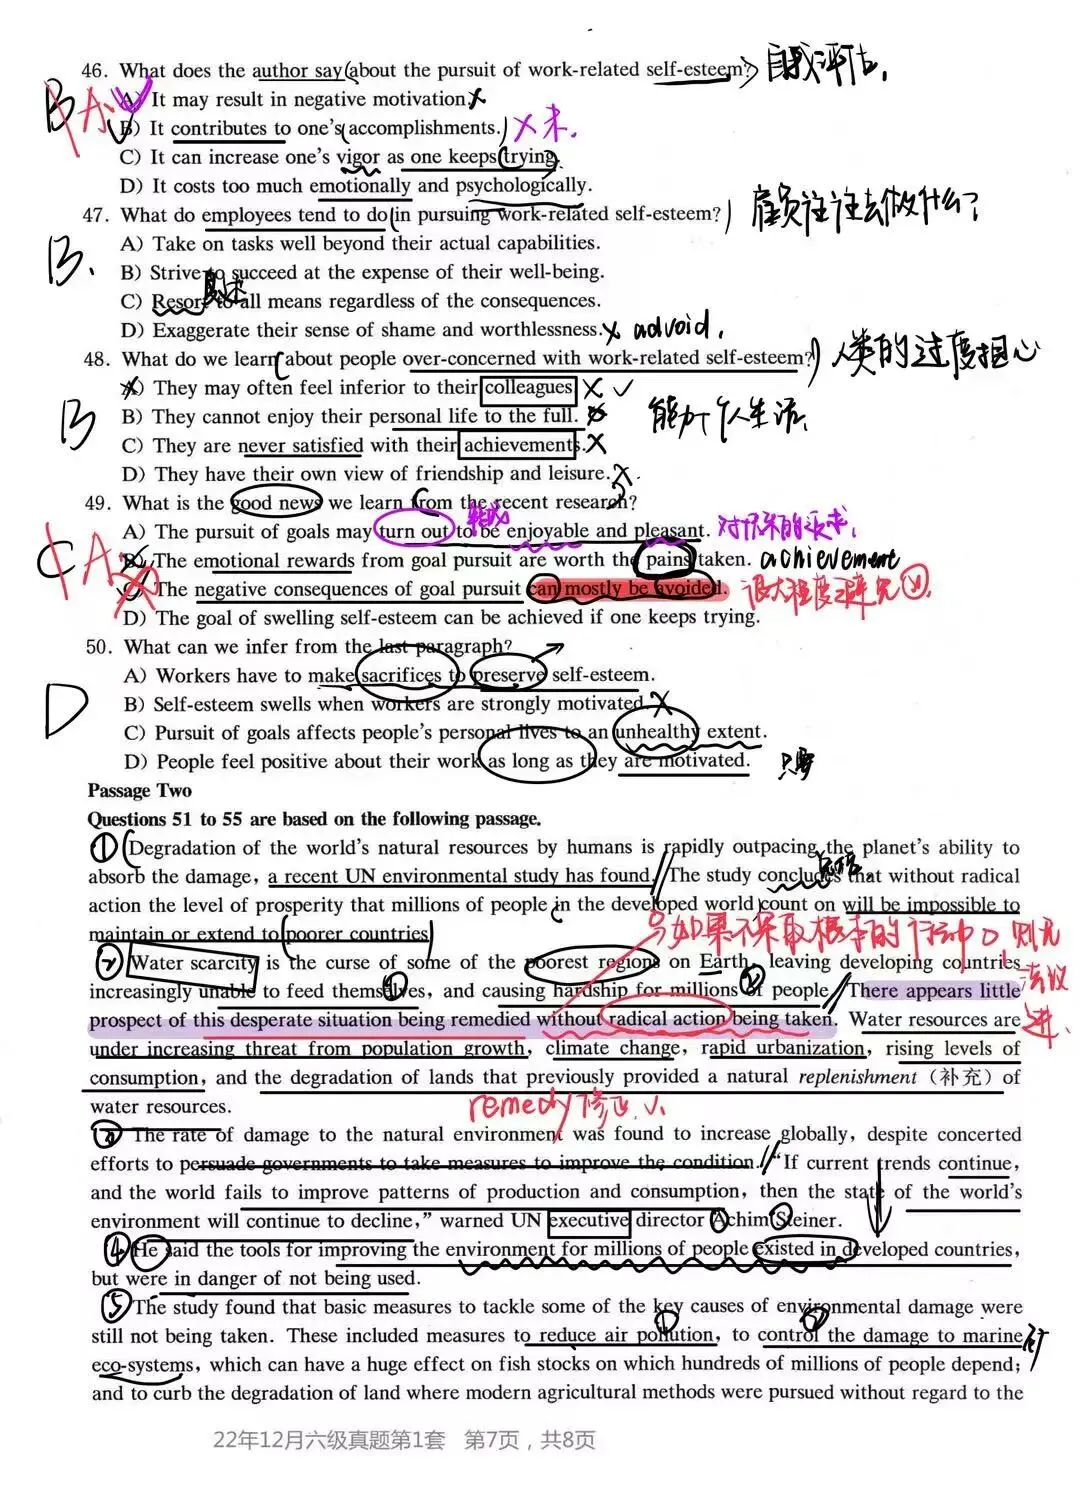 46. What does the author say about the pursuit of work-related self-esteem? 自我评估.
B A. A) It may result in negative motivation. X
B) It contributes to one's accomplishments. X 未.
C) It can increase one's vigor as one keeps trying.
D) It costs too much emotionally and psychologically.
47. What do employees tend to do in pursuing work-related self-esteem? 雇员往往去做什么?
A) Take on tasks well beyond their actual capabilities.
B. B) Strive to succeed at the expense of their well-being.
C) Resort to all means regardless of the consequences.
D) Exaggerate their sense of shame and worthlessness. X advoid.
48. What do we learn about people over-concerned with work-related self-esteem? 人类的过度担心
A) They may often feel inferior to their colleagues. X ✓
B B) They cannot enjoy their personal life to the full. 能力个人生活.
C) They are never satisfied with their achievements. X
D) They have their own view of friendship and leisure. X
49. What is the good news we learn from the recent research?
A) The pursuit of goals may turn out to be enjoyable and pleasant.
C A B) The emotional rewards from goal pursuit are worth the pains taken. achievement
C) The negative consequences of goal pursuit can mostly be avoided. 很大程度避免
D) The goal of swelling self-esteem can be achieved if one keeps trying.
50. What can we infer from the last paragraph?
A) Workers have to make sacrifices to preserve self-esteem.
D B) Self-esteem swells when workers are strongly motivated. X
C) Pursuit of goals affects people's personal lives to an unhealthy extent.
D) People feel positive about their work as long as they are motivated. 只要
Passage Two
Questions 51 to 55 are based on the following passage.
① Degradation of the world's natural resources by humans is rapidly outpacing the planet's ability to
absorb the damage, a recent UN environmental study has found. The study concludes that without radical
action the level of prosperity that millions of people in the developed world count on will be impossible to
maintain or extend to poorer countries.
如果不采取根本的行动, 则无
② Water scarcity is the curse of some of the poorest regions on Earth, leaving developing countries
increasingly unable to feed themselves, and causing hardship for millions of people. There appears little
prospect of this desperate situation being remedied without radical action being taken. Water resources are
under increasing threat from population growth, climate change, rapid urbanization, rising levels of
consumption, and the degradation of lands that previously provided a natural replenishment (补充) of
water resources. remedy
③ The rate of damage to the natural environment was found to increase globally, despite concerted
efforts to persuade governments to take measures to improve the condition. "If current trends continue,
and the world fails to improve patterns of production and consumption, then the state of the world's
environment will continue to decline," warned UN executive director Achim Steiner.
④ He said the tools for improving the environment for millions of people existed in developed countries,
but were in danger of not being used.
⑤ The study found that basic measures to tackle some of the key causes of environmental damage were
still not being taken. These included measures to reduce air pollution, to control the damage to marine
eco-systems, which can have a huge effect on fish stocks on which hundreds of millions of people depend;
and to curb the degradation of land where modern agricultural methods were pursued without regard to the
22年12月六级真题第1套 第7页，共8页